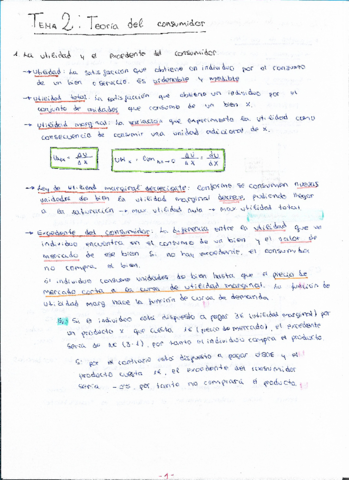 TEMA 2: Teoría del consumidor
1. La utilidad y el excedente del consumidor
→ Utilidad: La satisfacción que obtiene un individuo por el consumo
de un bien o servicio. Es ordenable y medible
→ Utilidad total: La satisfacción que obtiene un individuo por el
conjunto de unidades que consume de un bien X.
→ Utilidad marginal: La variación que experimenta la utilidad como
consecuencia de consumir una unidad adicional de X.
UMx = ΔU/ΔX UMx = Con Δx→0 ΔU/ΔX = dU/dX
→ Ley de utilidad marginal decreciente: Conforme se consumen nuevas
unidades del bien la utilidad marginal decrece, pudiendo llegar
a la saturación → max utilidad total
→ Excedente del consumidor: La diferencia entre la utilidad que un
individuo encuentra en el consumo de un bien y el valor de
mercado de ese bien. Si no hay excedente, el consumidor
no compra el bien.
El individuo consume unidades de bien hasta que el precio de
mercado corta a la curva de utilidad marginal. La función de
utilidad marg hace la función de curva de demanda.
Ej: Si el individuo está dispuesto a pagar 3€ (utilidad marginal) por
un producto X que cuesta 1€ (precio de mercado), el excedente
sería de 2€ (3-1), por tanto el individuo compra el producto
Si por el contrario está dispuesto a pagar y el
producto cuesta 1€, el excedente del consumidor
sería por tanto no compraría el producto.
-1-